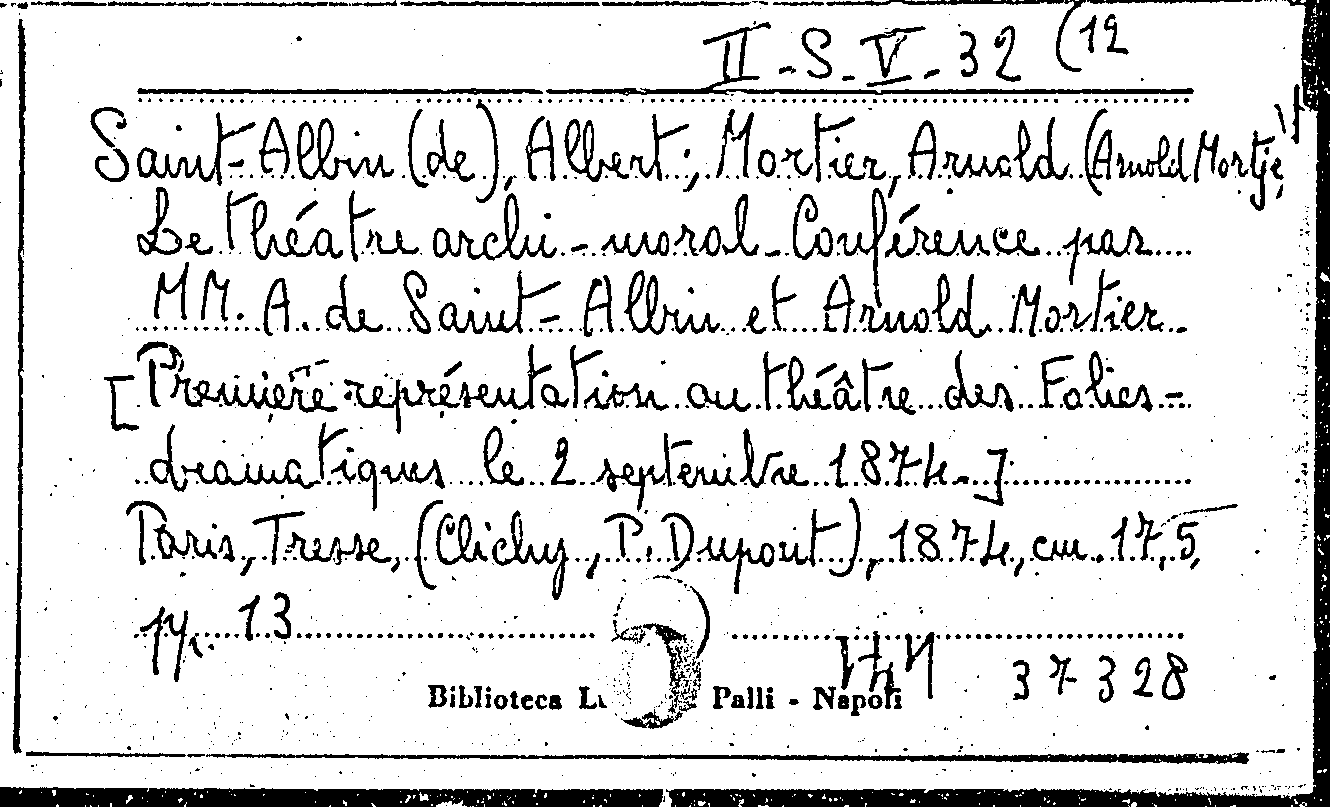 II-S-V-32 (12
Saint-Albin (de), Albert; Mortier, Arnold (Arnold Mortje,
Le théatre archi-moral-Conférence par
MM. A. de Saint-Albin et Arnold Mortier-
[Première représentation au théâtre des Folies-
dramatiques le 2 septembre 1874-]
Paris, Tresse, (Clichy, P. Dupont), 1874, cm. 17,5,
pp. 13
37328
Biblioteca Palli - Napoli